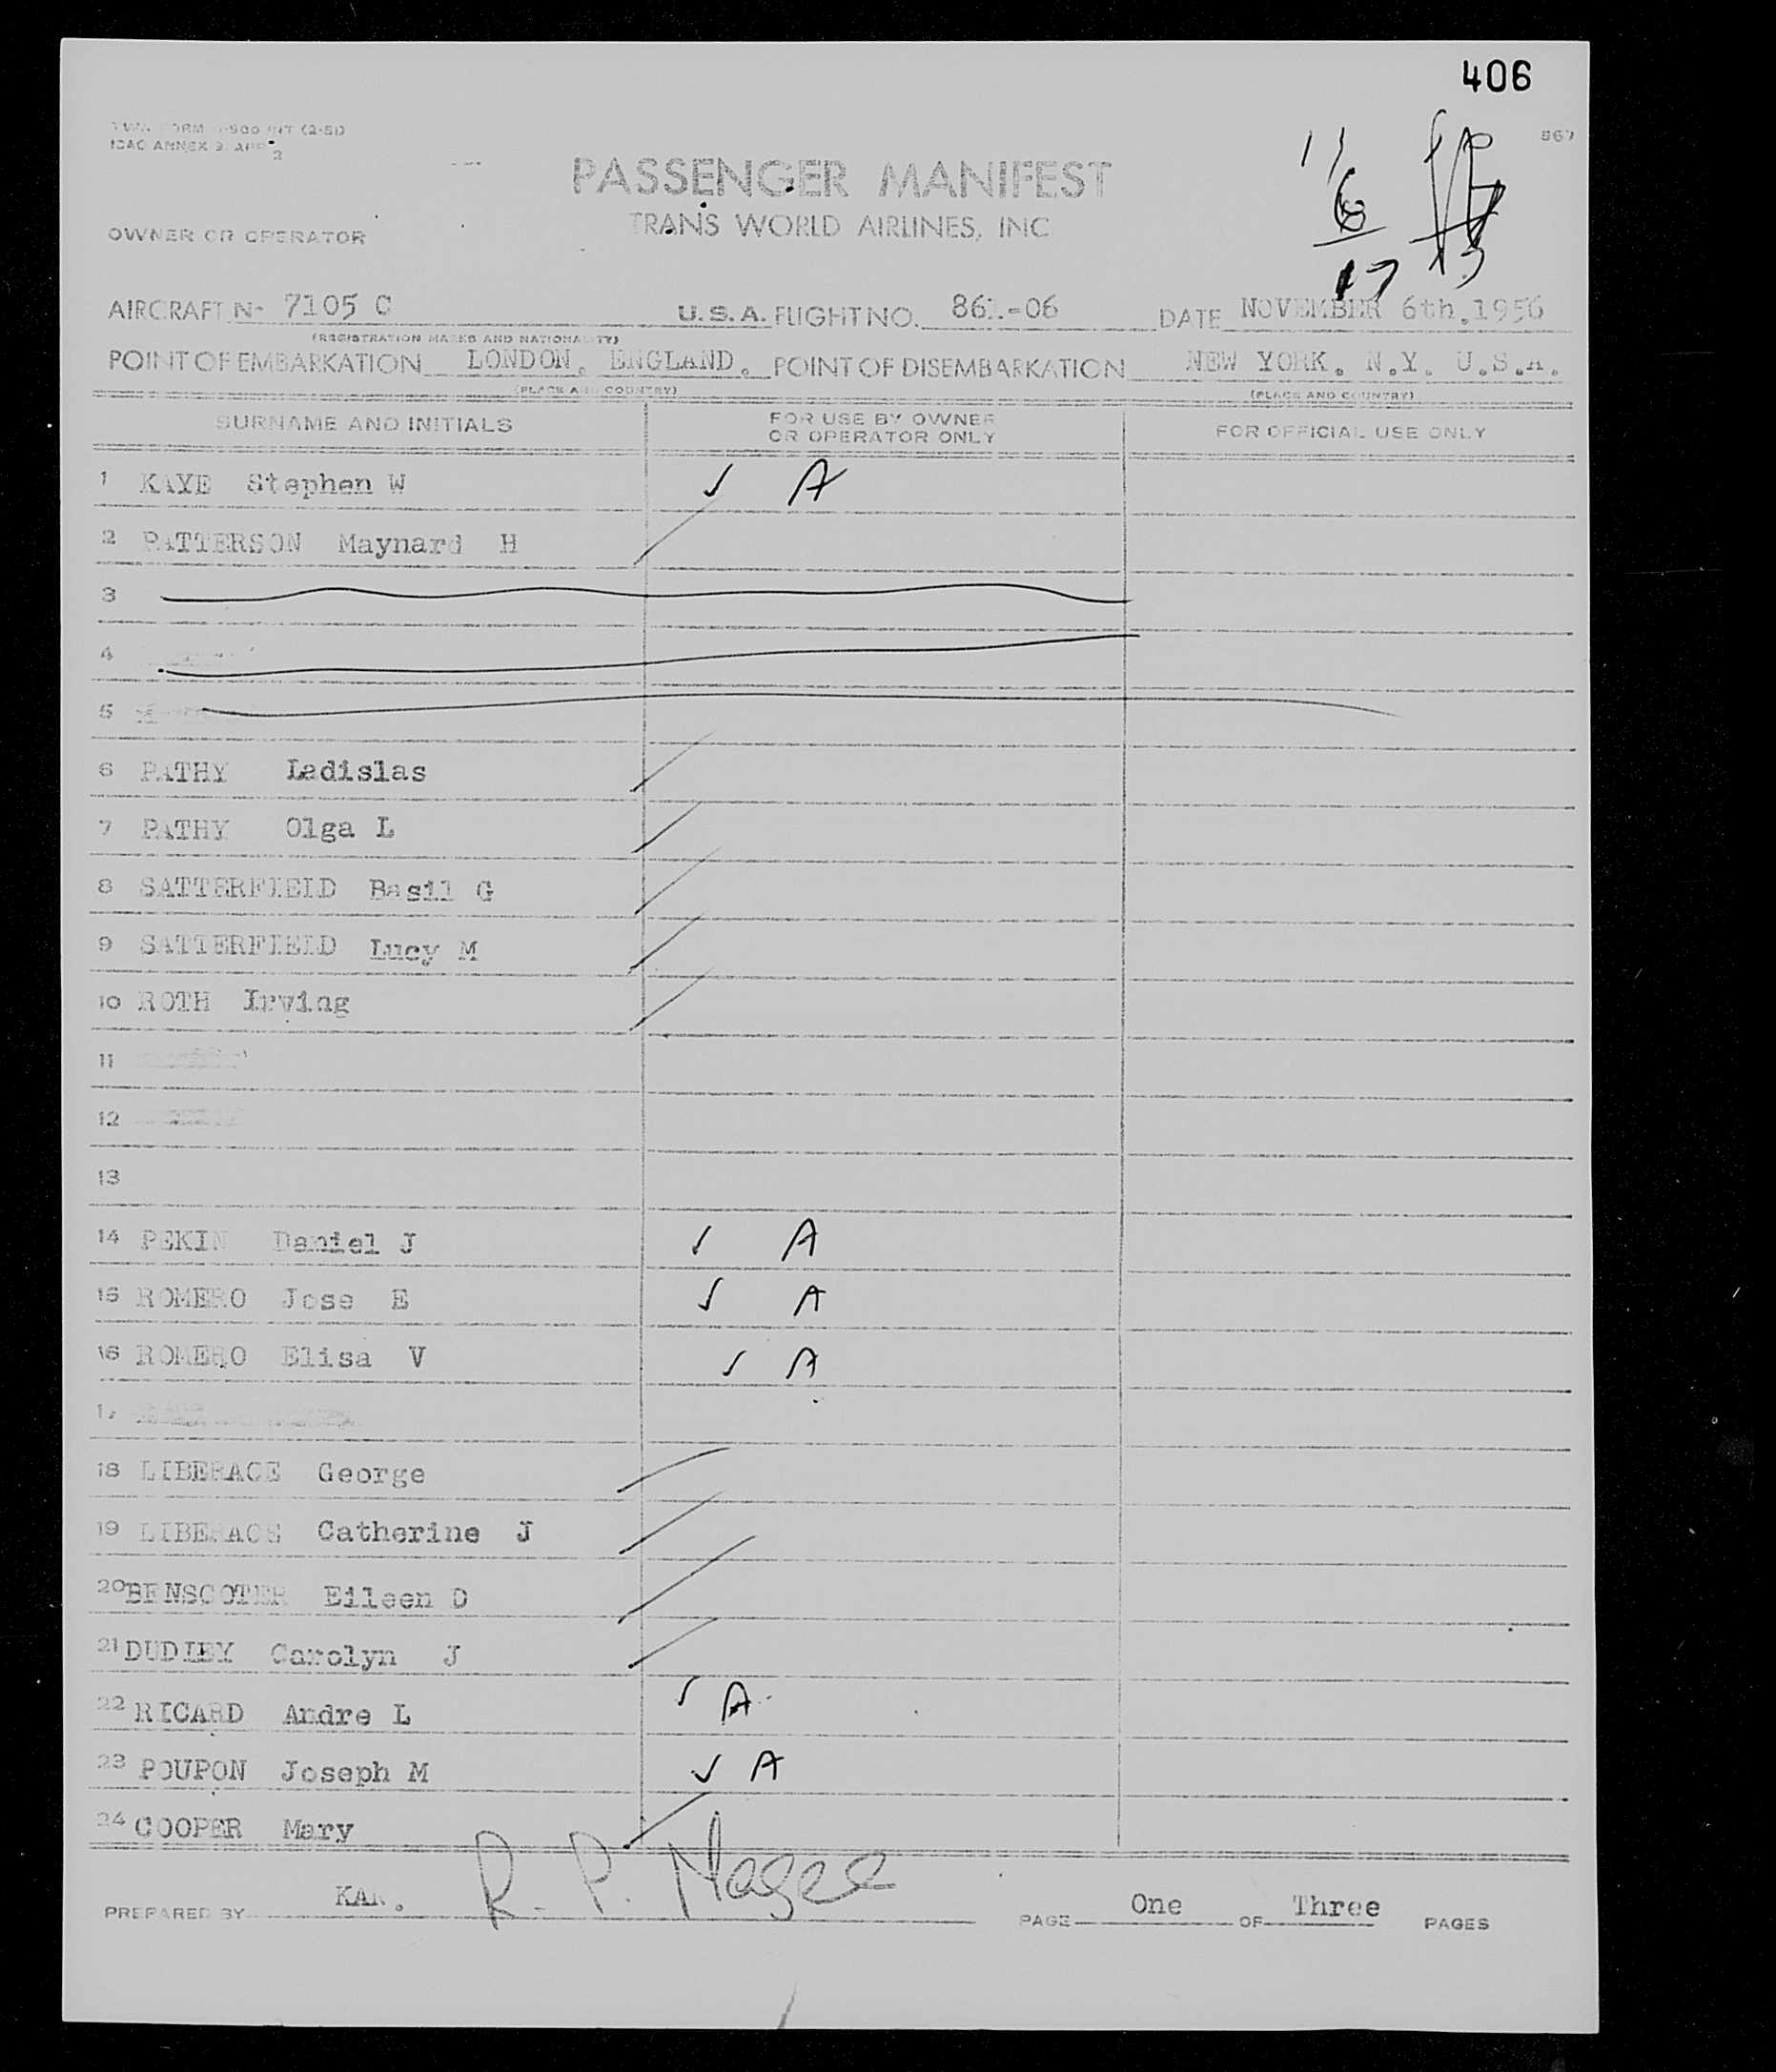 406
FORM -900 INT (2-51)
ICAO ANNEX 9. APP 2
867
11
6
17
PASSENGER MANIFEST
TRANS WORLD AIRLINES, INC
OWNER OR OPERATOR
AIRCRAFT N- 7105 C U.S.A. FLIGHT NO. 861-06 DATE NOVEMBER 6th.1956
(REGISTRATION MARKS AND NATIONALITY)
POINT OF EMBARKATION LONDON. ENGLAND. POINT OF DISEMBARKATION NEW YORK. N.Y. U.S.A.
(PLACE AND COUNTRY) (PLACE AND COUNTRY)
SURNAME AND INITIALS FOR USE BY OWNER OR OPERATOR ONLY FOR OFFICIAL USE ONLY
1 KAYE Stephen W ✓ A
2 PATTERSON Maynard H
3
4
5
6 PATHY Ladislas
7 PATHY Olga L
8 SATTERFIELD Basil G
9 SATTERFIELD Lucy M
10 ROTH Irving
11
12
13
14 PEKIN Daniel J ✓ A
15 ROMERO Jose E ✓ A
16 ROMERO Elisa V ✓ A
17
18 LIBERACE George
19 LIBERACE Catherine J
20 BENSCOTER Eileen D
21 DUDLEY Carolyn J
22 RICARD Andre L ✓ A
23 POUPON Joseph M ✓ A
24 COOPER Mary
PREPARED BY R. P. Magee PAGE One OF Three PAGES